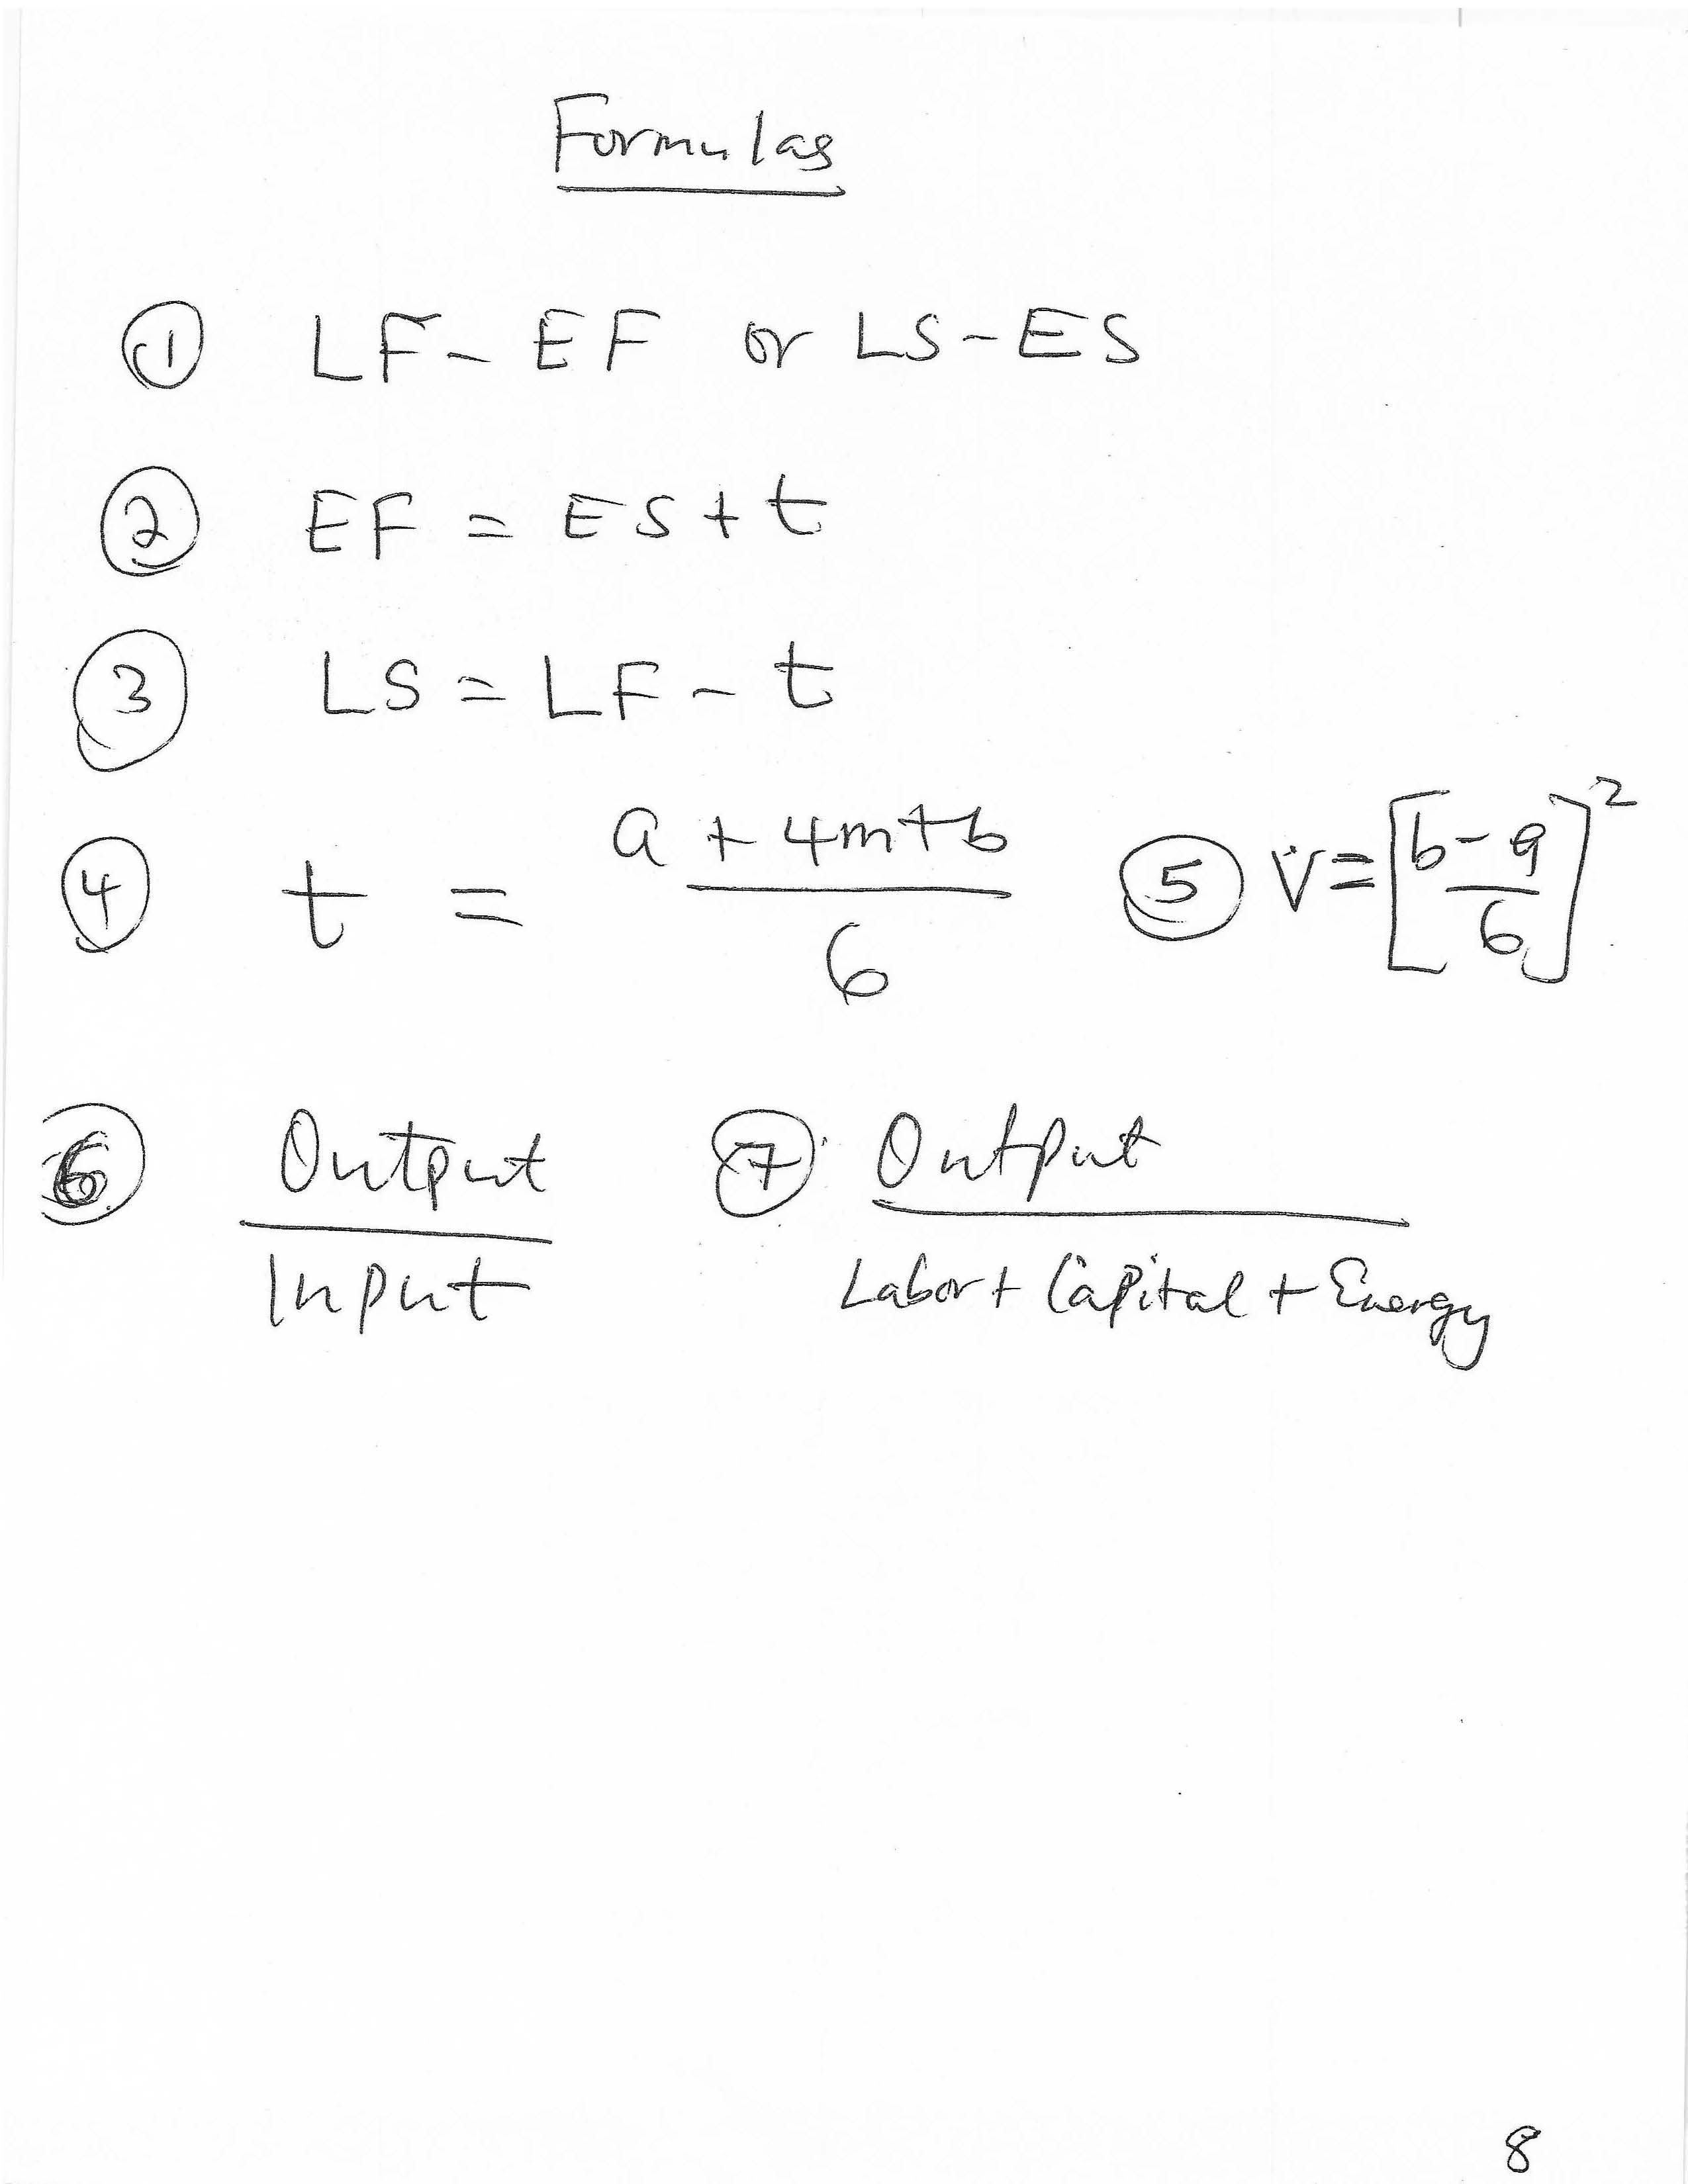 Formulas
① LF - EF or LS - ES
② EF = ES + t
③ LS = LF - t
④ t = a + 4m + b / 6 ⑤ V = [b - a / 6]²
⑥ Output / Input ⑦ Output / Labor + Capital + Energy
8